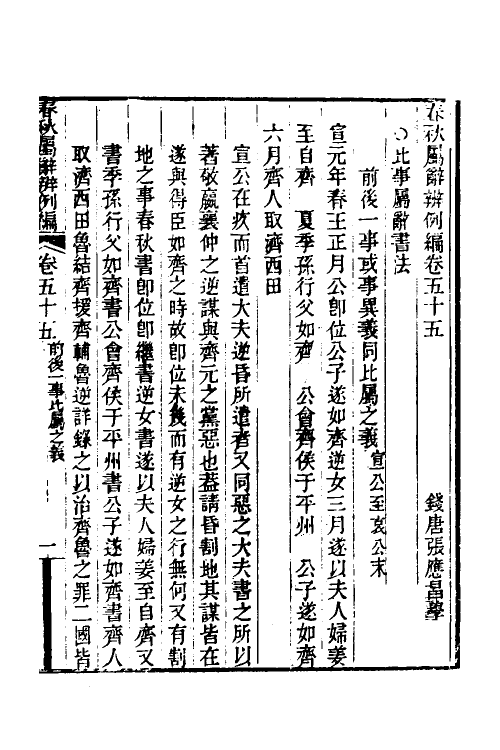 春秋屬辭辨例編卷五十五
錢唐張應昌學
○比事屬辭書法
前後一事或事異義同比屬之義宣公至哀公末
宣元年春王正月公卽位公子遂如齊逆女三月遂以夫人婦姜
至自齊　夏季孫行父如齊　公會齊侯于平州　公子遂如齊
六月齊人取濟西田
宣公在疚而首遣大夫逆昏所遣者又同惡之大夫書之所以
著敬嬴襄仲之逆謀與齊元之黨惡也蓋請昏割地其謀皆在
遂與得臣如齊之時故卽位未幾而有逆女之行無何又有割
地之事春秋書卽位卽繼書逆女書遂以夫人婦姜至自齊又
書季孫行父如齊書公會齊侯于平州書公子遂如齊書齊人
取濟西田魯結齊援齊輔魯逆詳錄之以治齊魯之罪二國皆
春秋屬辭辨例編　卷五十五　前後一事比屬之義　一